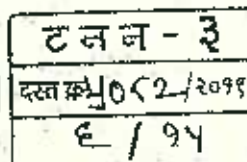 ट न न - ३
दस्त क्र५०८२/२०११
६ / १५